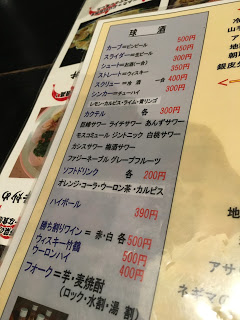 球　酒
カーブ＝ビンビール 500円
スライダー＝生ビール 450円
シュート＝お酒(一合) 300円
ストレート＝ウィスキー 350円
スクリュー＝酒(一合) 400円
シンカー＝チューハイ 300円
レモン・カルピス・ライム・青リンゴ
カクテル 各 300円
巨峰サワー ライチサワー あんずサワー
モスコミュール ジントニック 白桃サワー
カシスサワー 梅酒サワー
ファジーネーブル グレープフルーツ
ソフトドリンク 各 200円
オレンジ・コーラ・ウーロン茶・カルピス
ハイボール 390円
勝ち割りワイン＝赤・白 各500円
ウィスキー竹鶴 500円
ウーロンハイ 400円
フォーク＝芋・麦焼酎
(ロック・水割・湯割)
地
アサ
ネギマの